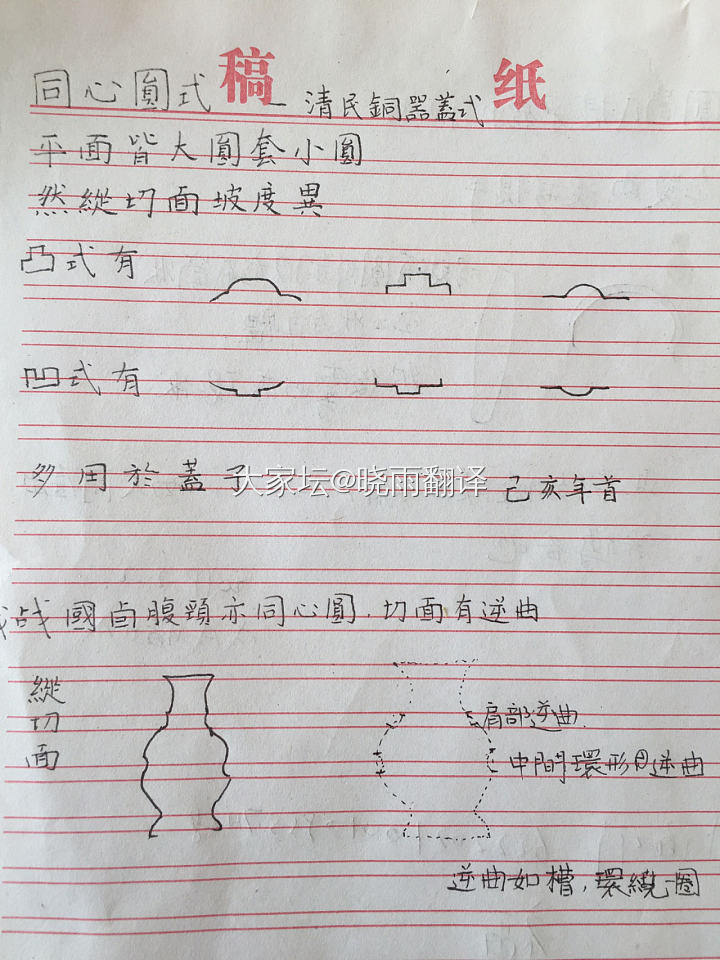 稿纸
同心圓式 — 清民銅器蓋式
平面皆大圓套小圓
然縱切面坡度異
凸式有
凹式有
多用於蓋子
大家坛@晓雨翻译
己亥年首
战國卣腹頸亦同心圓.切面有逆曲
縱切面
肩部逆曲
中間環形凹逆曲
逆曲如槽,環繞一圈